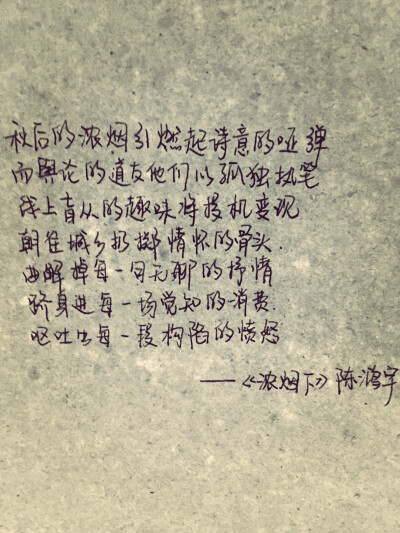 秋后的浓烟引燃起诗意的哑弹
而舆论的道友他们以孤独执笔
序上盲从的趣味将投机变现
朝往城乡扔掷情怀的骨头.
曲解掉每一句无聊的抒情
跻身进每一场觉知的消费.
呕吐出每一段构陷的愤怒
——《浓烟下》陈鸿宇